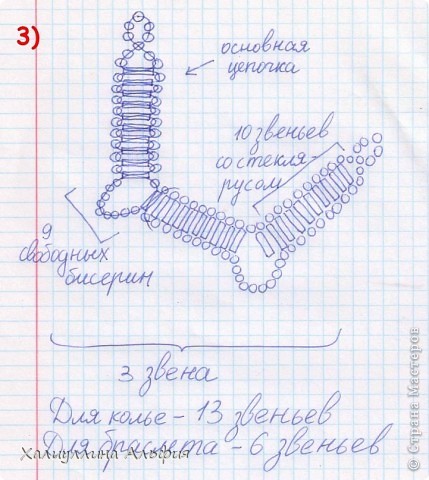 3)
основная
цепочка
10 звеньев
со стекля-
русом
9
свободных
бисерин
3 звена
Для колье - 13 звеньев
Для браслета - 6 звеньев
Халиуллина Альфия
© Страна Мастеров